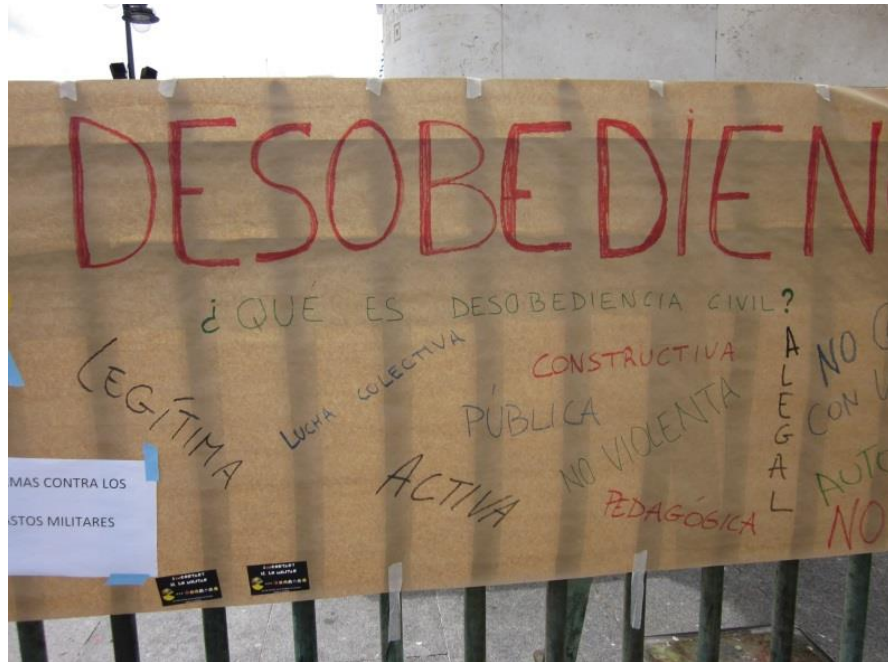 DESOBEDIEN
¿QUÉ ES DESOBEDIENCIA CIVIL?
LEGÍTIMA
LUCHA COLECTIVA
CONSTRUCTIVA
PÚBLICA
ACTIVA
NO VIOLENTA
PEDAGÓGICA
ALEGAL
NO
CON
AUTO
NO
MAS CONTRA LOS
ASTOS MILITARES